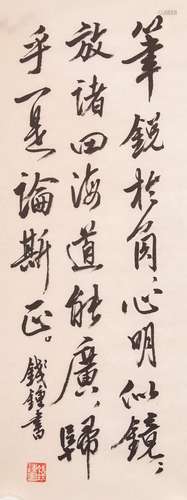 筆銳於角、心明似鏡、
放諸四海道能廣、歸
乎一是論斯正。
錢鍾書